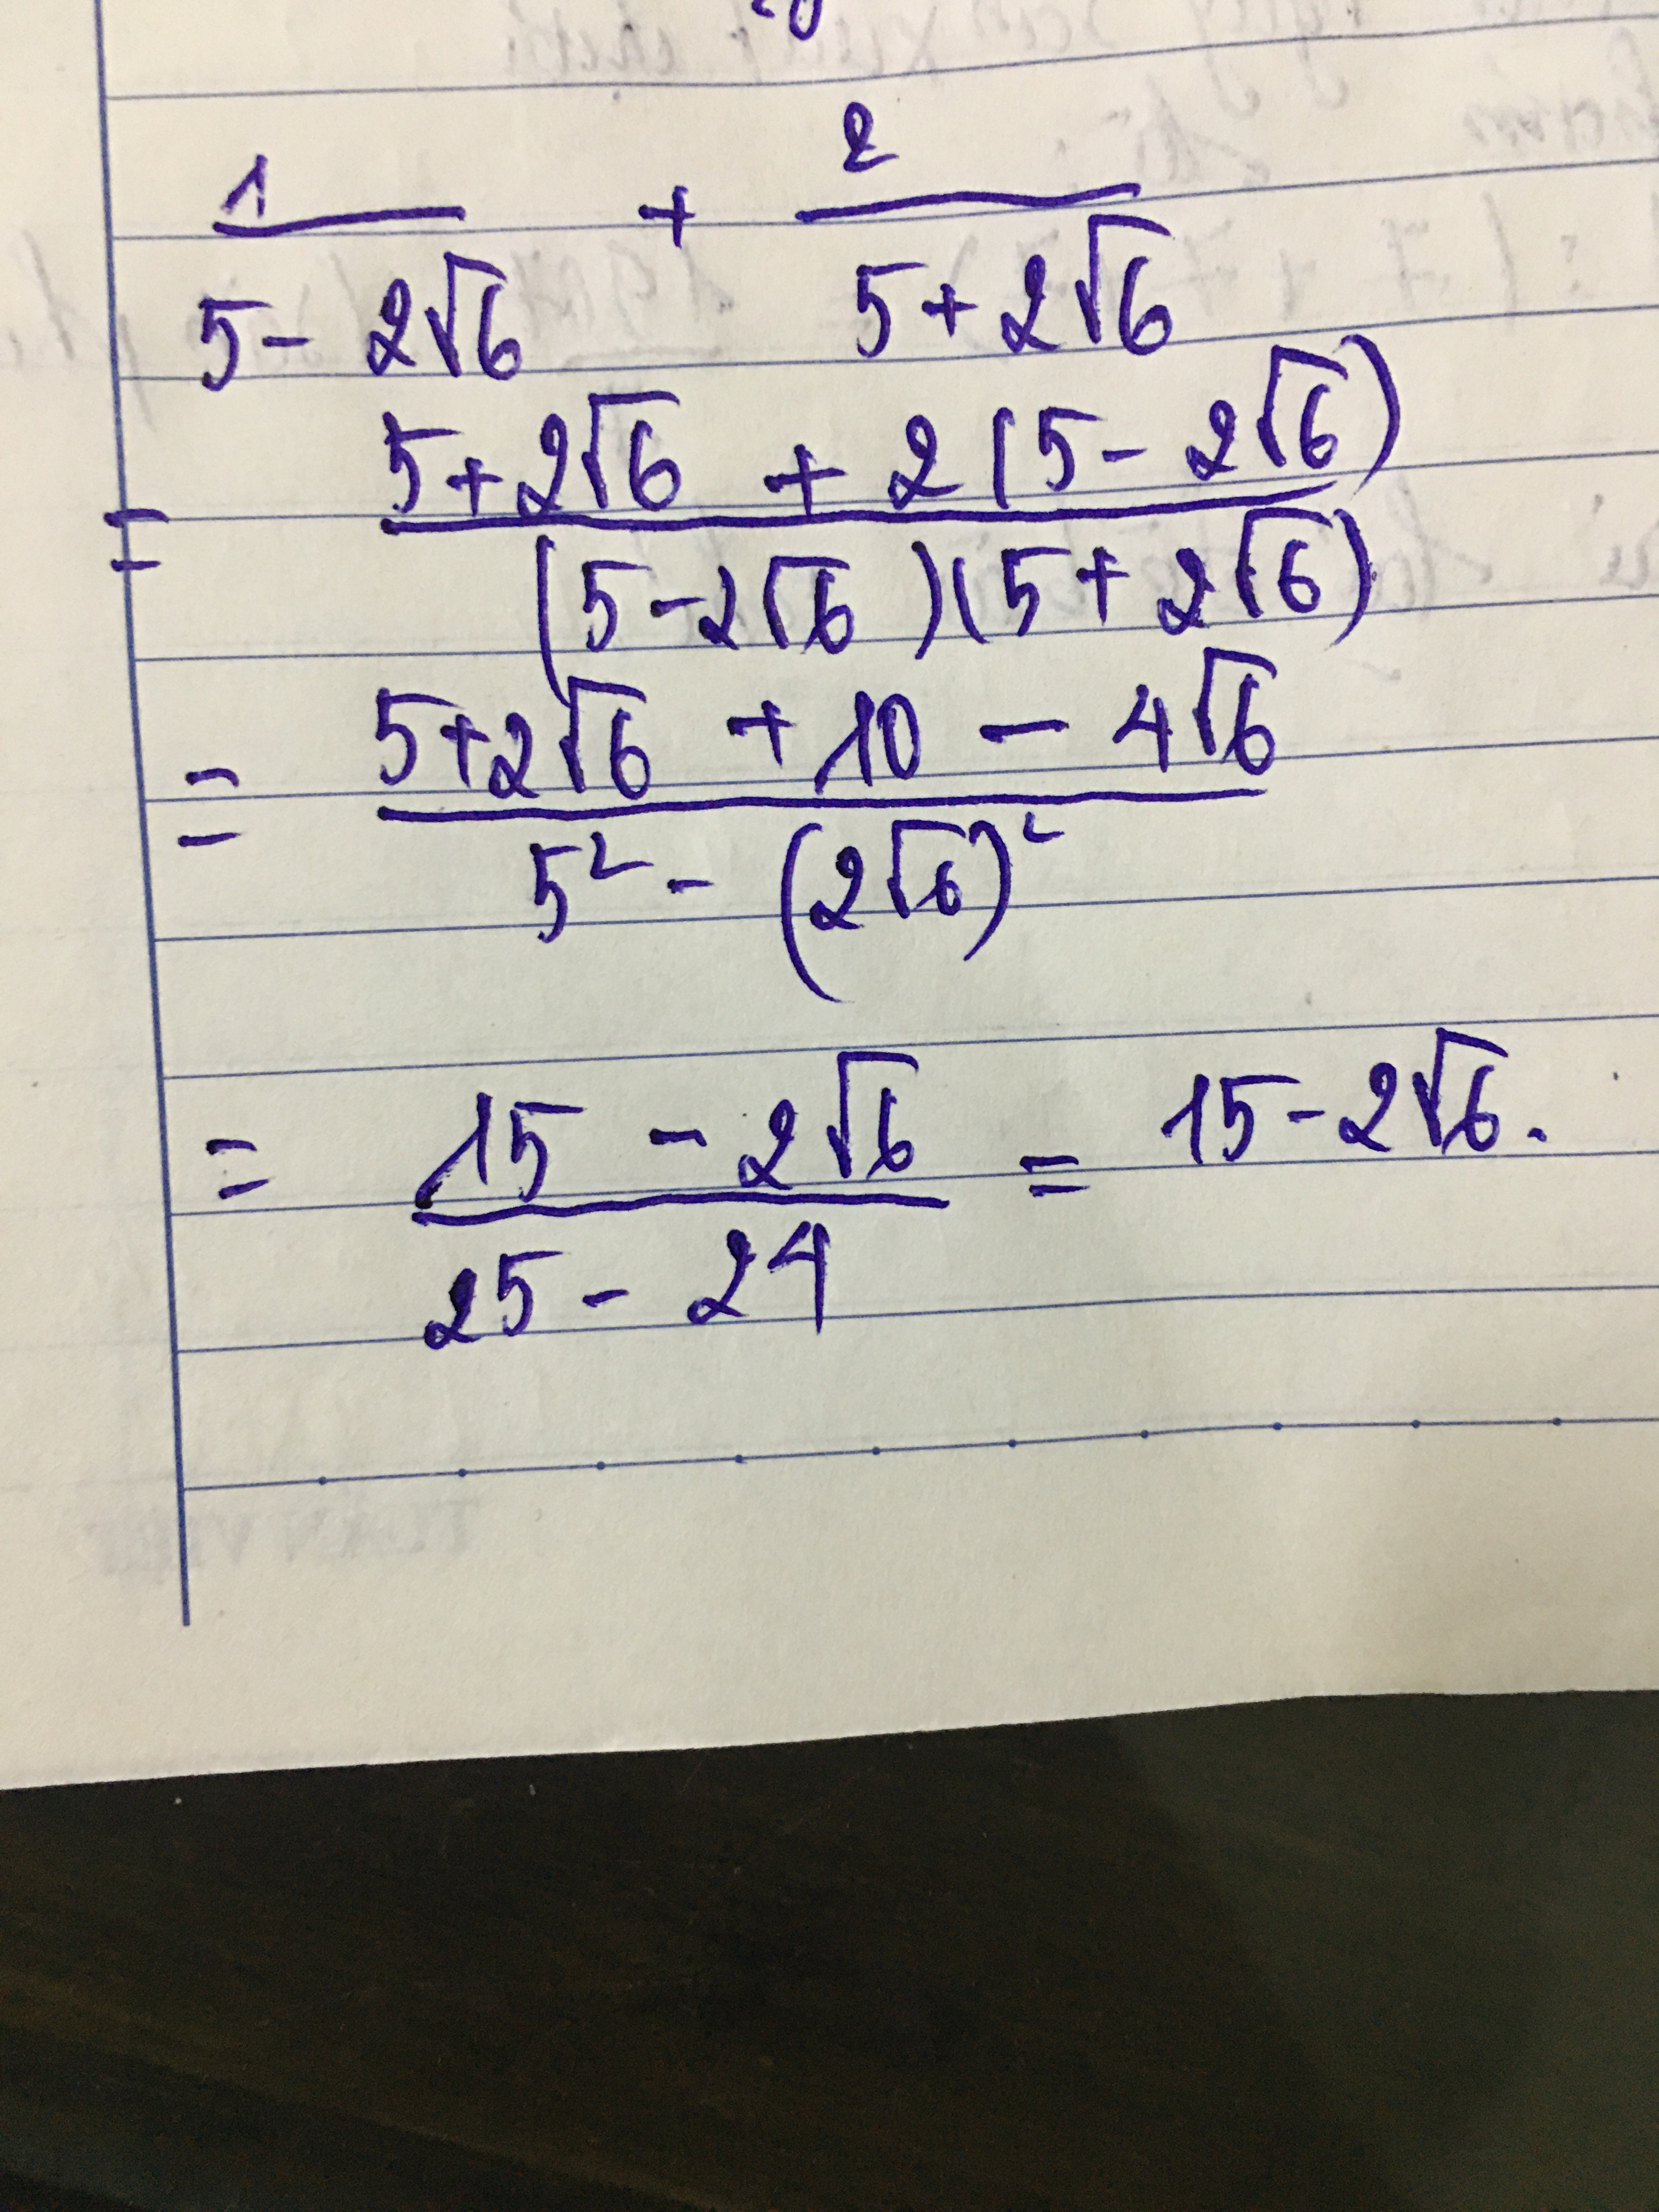 1/(5 - 2√6) + 2/(5 + 2√6)
= (5 + 2√6 + 2(5 - 2√6))/((5 - 2√6)(5 + 2√6))
= (5 + 2√6 + 10 - 4√6)/(5² - (2√6)²)
= (15 - 2√6)/(25 - 24) = 15 - 2√6.